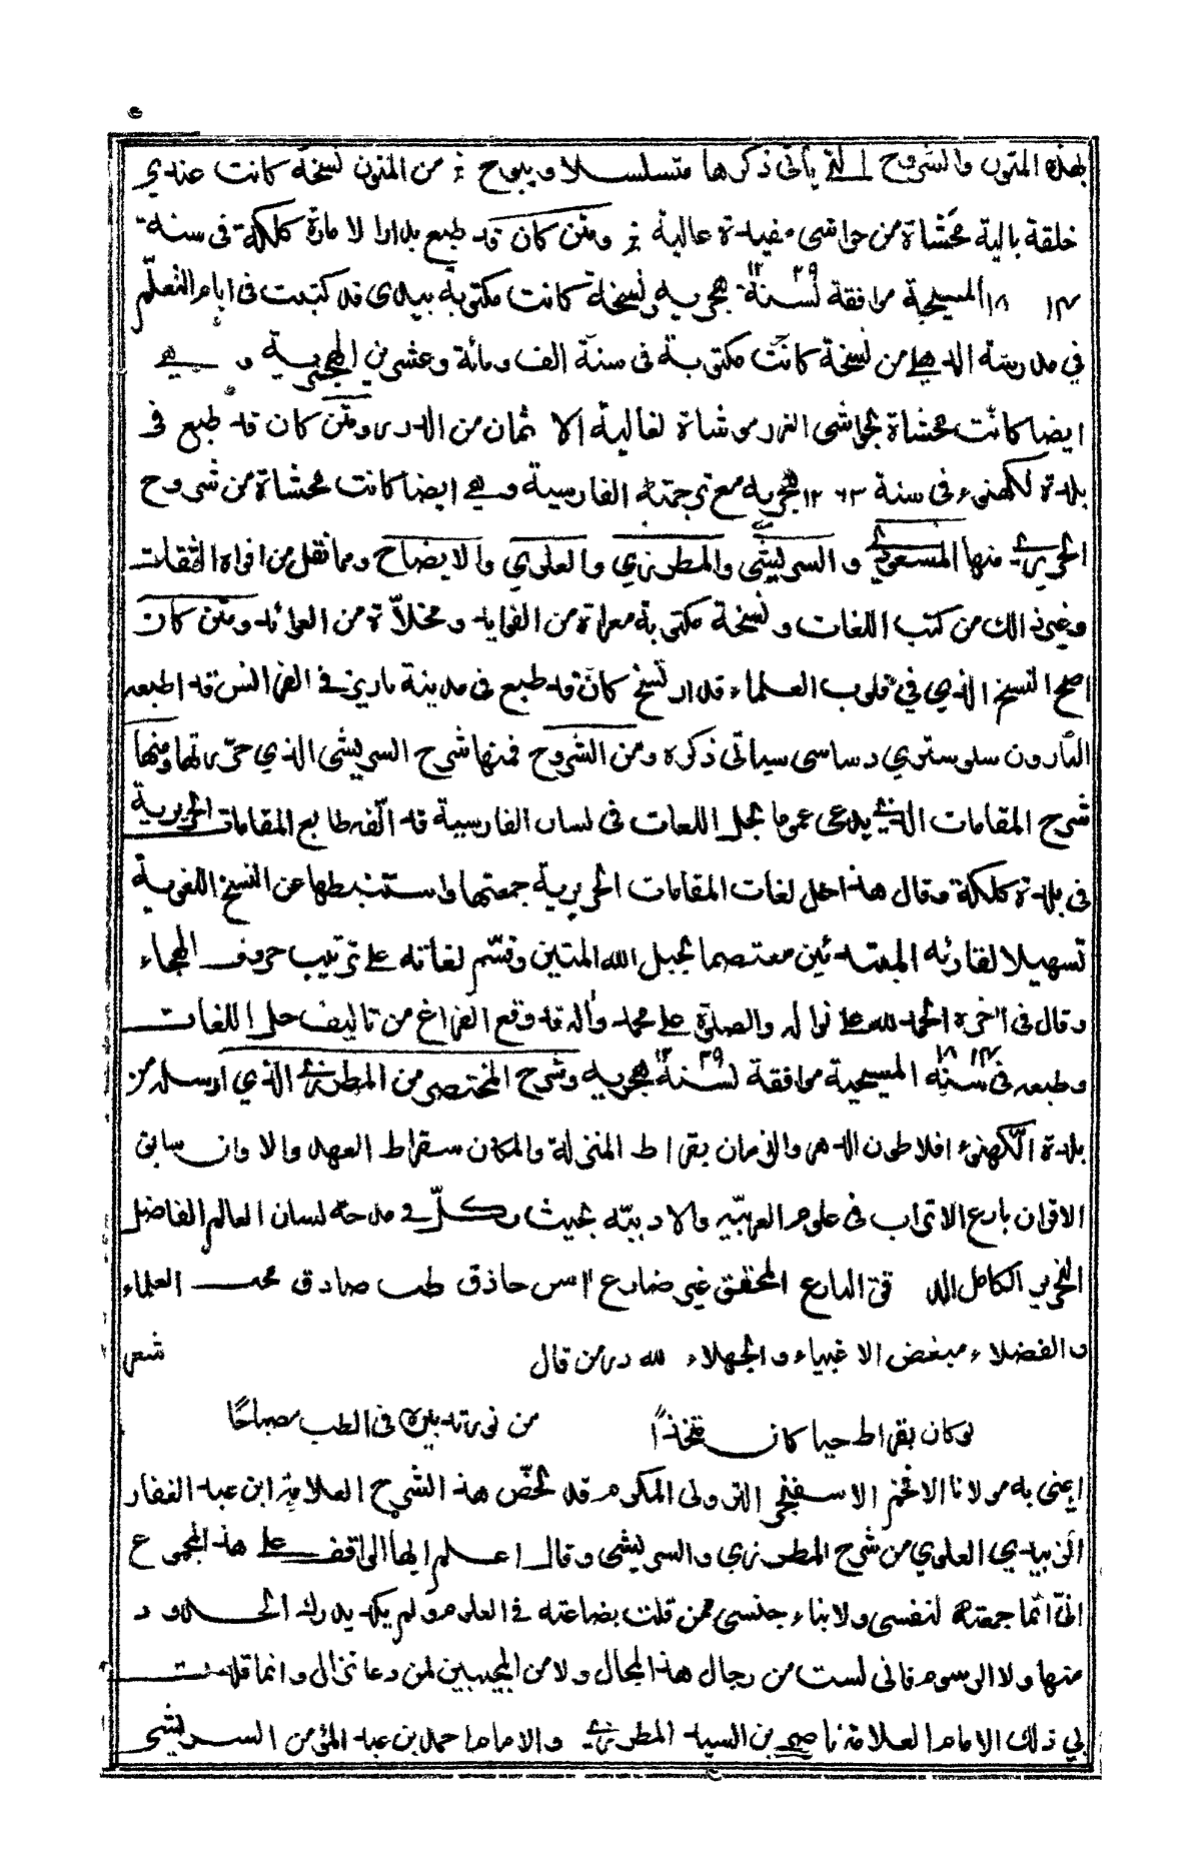 ٥
بهذه المتون والشروح التي يأتي ذكرها متسلسلا ويبوح : من المتون نسخة كانت عندي
خلقة بالية محشاة من حواشى مفيدة عالية : ومتن كان قد طبع بدارا لامارة كلكتة فى سنة
١٨١٤ المسيحية موافقة لسنة ١٢٢٩ هجريه ونسخة كانت مكتوبة بيدى قد كتبت فى ايام التعلّم
في مدينة الدهلي من نسخة كانت مكتوبة فى سنة الف ومائة وعشرين الهجرية و هي
ايضا كانت محشاة بحواشى الغرر موشاة لغالية الا ثمان من الدرر ومتن كان قد طبع فى
بلدة لكهنوء فى سنة ١٢٦٣ هجريه مع ترجمته الفارسية وهي ايضا كانت محشاة من شروح
الحريري منها المسعودي و السريشي والمطرزي والعلوي والايضاح ومما نقل من افواه الثقات
وغير ذالك من كتب اللغات ونسخة مكتوبة معراة من الفوايد ومخلاّة من العوائد ومتن كان
اصح النسخ الذي في قلوب العلماء قد ارتسخ كان قد طبع فى مدينة باريز في الفرانس قد اطبعه
البارون سلوستري دساسى سيأتى ذكره ومن الشروح فمنها شرح السريشى الذي حرّرتها ومنها
شرح المقامات الذي يدعى عموما بحل اللغات فى لسان الفارسية قد الّفه طابع المقامات الحريرية
فى بلدة كلكتة وقال هذا حل لغات المقامات الحريرية جمعتها واستنبطها عن النسخ اللغوية
تسهيلا لقارئه المبتدئين معتصما بحبل الله المتين وقسّم لغاته على ترتيب حروف الهجاء
وقال فى اخره الحمد لله على نواله والصلوة على محمد وأله قد وقع الفراغ من تاليف حل اللغات
وطبعه فى سنة ١٨١٤ المسيحية موافقة لسنة ١٢٢٩ هجريه وشرح المختصر من المطرزي الذي ارسله من
بلدة الكهنوء افلاطون الدهر والزمان بقراط المنزلة والمكان سقراط العهد والاوان سابق
الاقران بارع الاتراب فى علوم العربيّه والادبيّه بحيث وكلّ في مدحته لسان العالم الفاضل
النحرير الكامل قى البارع المحقق غير ضارع حاذق طب صادق محب العلماء
والفضلاء مبغض الاغبياء والجهلاء لله در من قال شعر
لوكان بقراط حيا كان متخذاً من نور تدبيره فى الطب مصباحًا
اعنى به مولانا الافخم المكرم قد لخّص هذ الشرح العلامة ابن عبد الغفار
الزبيدي العلوي من شرح المطرزي والسريشى وقال اعلم ايها الواقف على هذ المجموع
انى انما جمعته لنفسى ولابناء جنسى ممن قلت بضاعته في العلوم ولم يكد يدرك الحدود
منها ولا الرسوم فانى لست من رجال هذ المجال ولا من المجيبين لمن دعا نزال وانما قلدت
في ذلك الامام العلامة ناصر بن السيد المطرزي والامام احمد بن عبد المؤمن السريشى